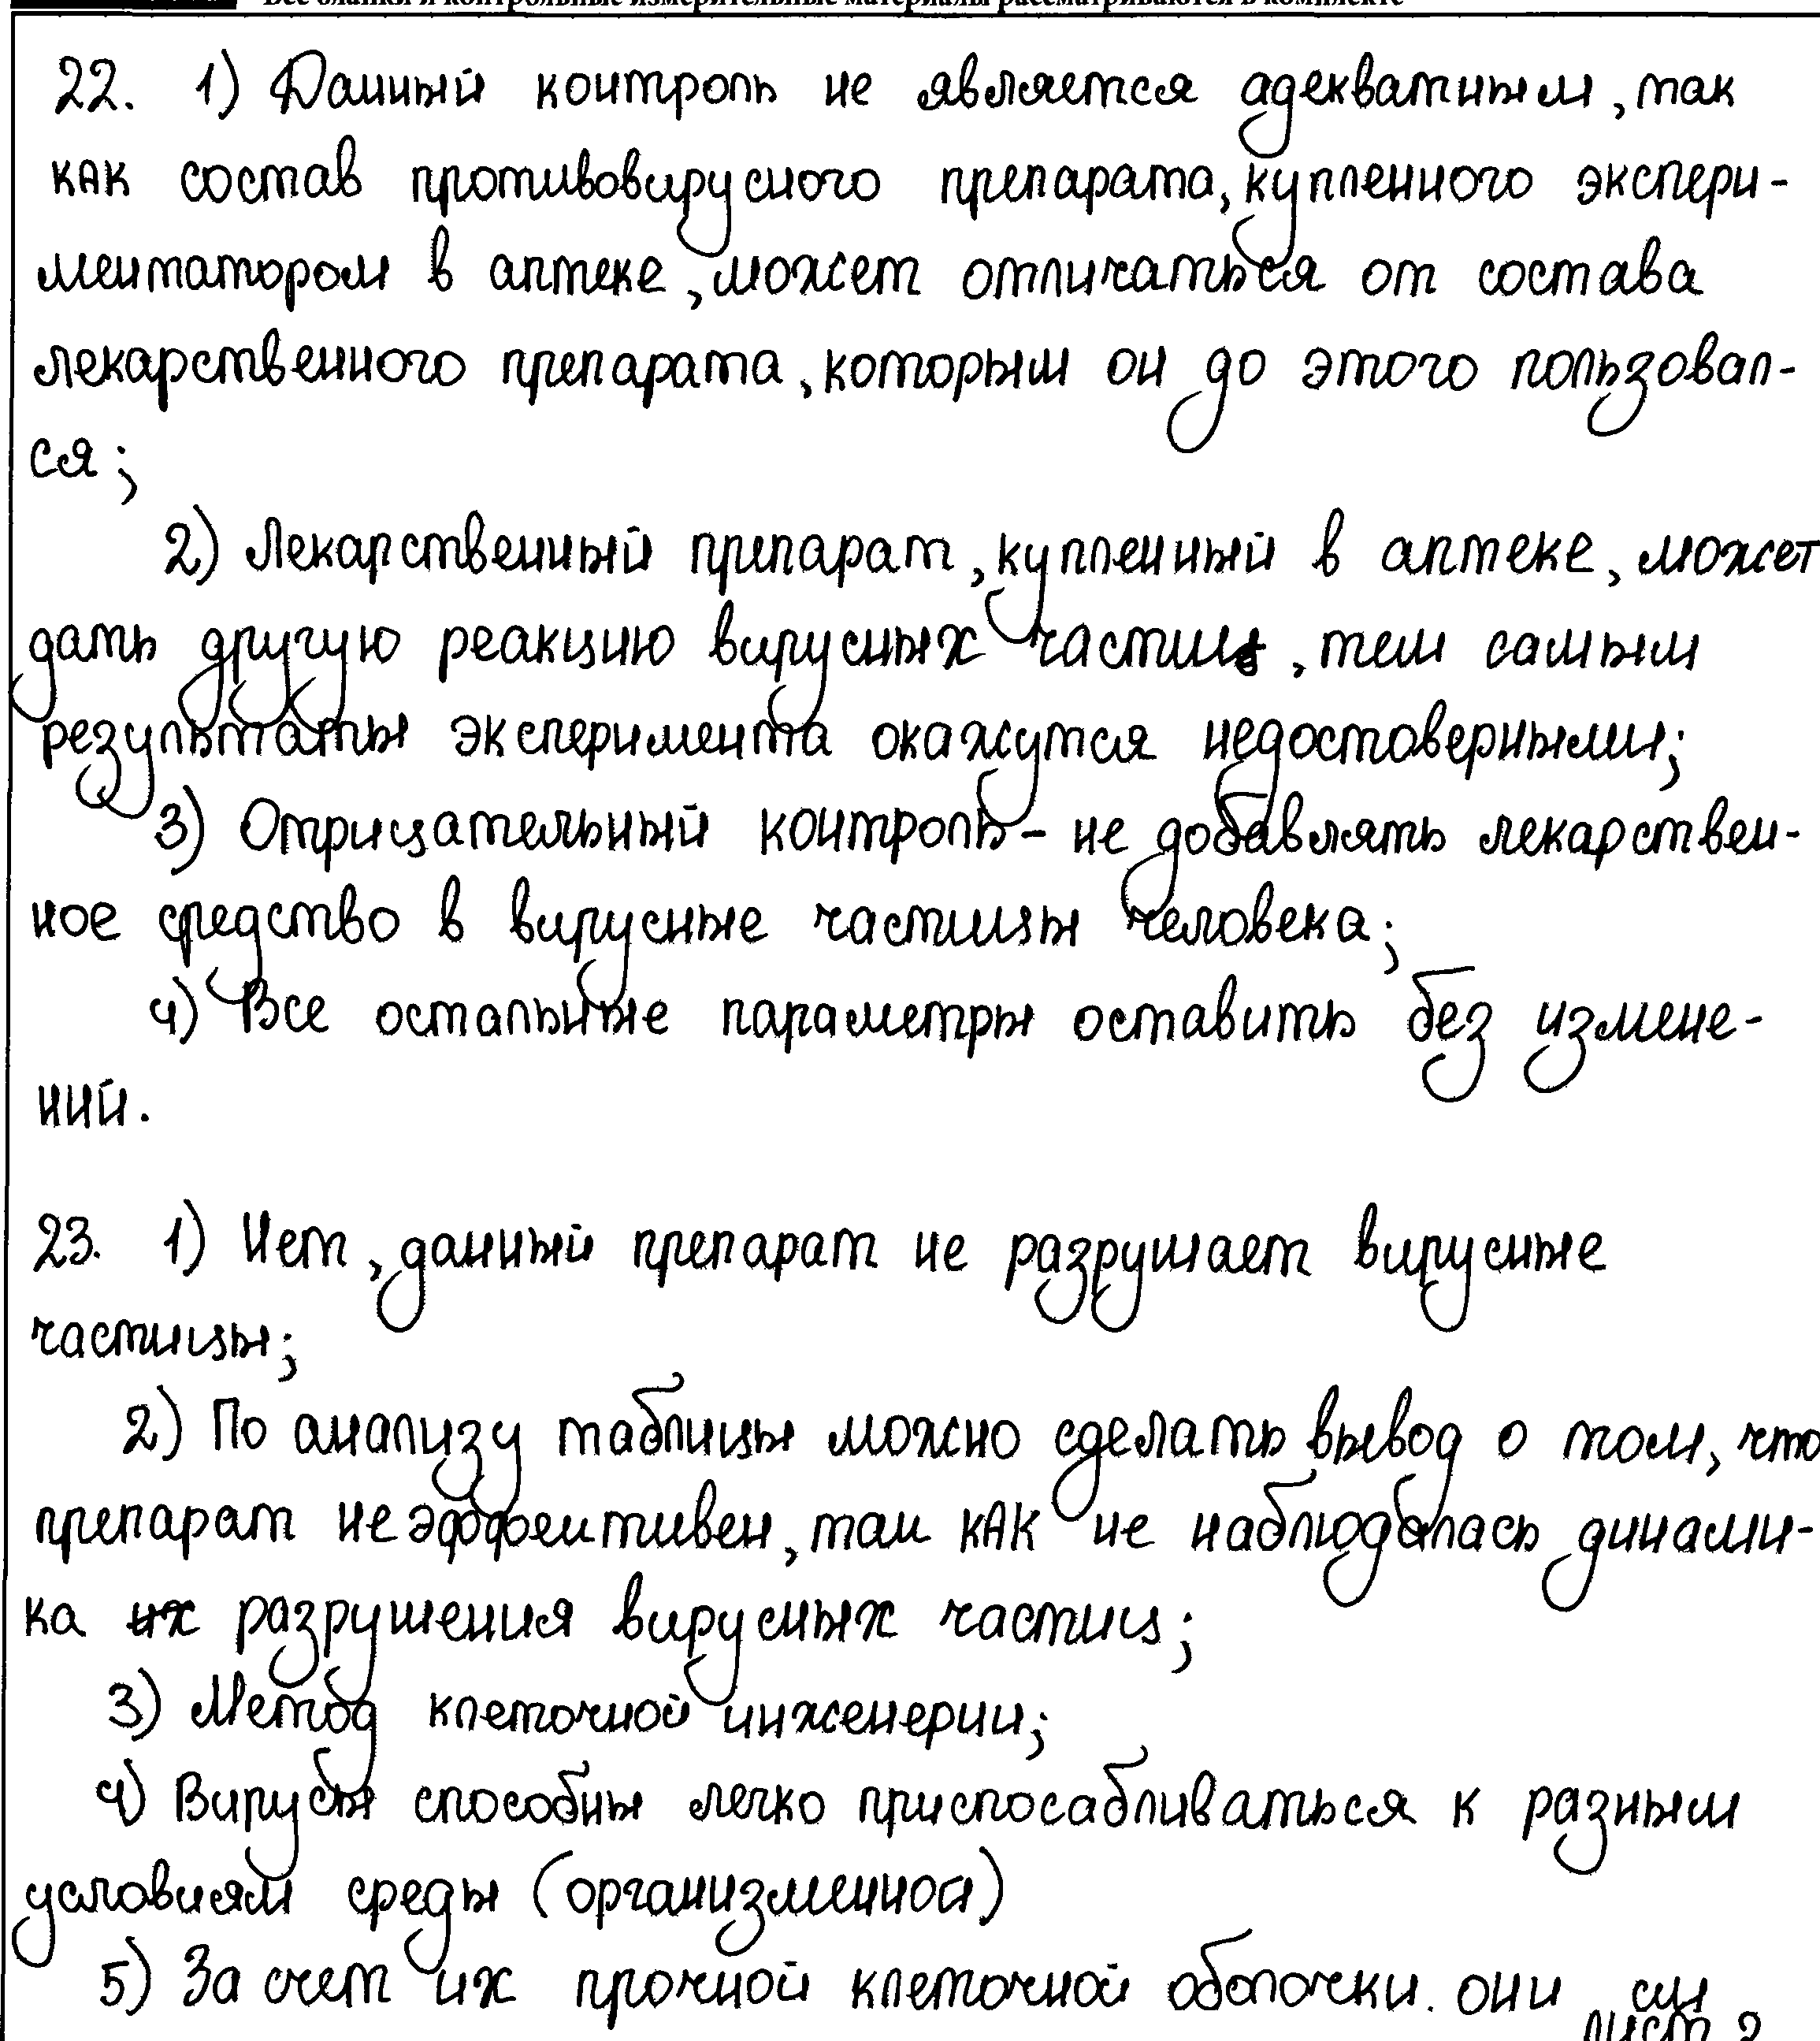 Все бланки и контрольные измерительные материалы рассматриваются в комплекте
22. 1) Данный контроль не является адекватным, так
как состав противовирусного препарата, купленного экспери-
ментатором в аптеке, может отличаться от состава
лекарственного препарата, которым он до этого пользовал-
ся;
2) Лекарственный препарат, купленный в аптеке, может
дать другую реакцию вирусных частиц, тем самым
результаты эксперимента окажутся недостоверными;
3) Отрицательный контроль - не добавлять лекарствен-
ное средство в вирусные частицы человека;
4) Все остальные параметры оставить без измене-
ний.
23. 1) Нет, данный препарат не разрушает вирусные
частицы;
2) По анализу таблицы можно сделать вывод о том, что
препарат не эффективен, так как не наблюдалась динами-
ка их разрушения вирусных частиц;
3) Метод клеточной инженерии;
4) Вирусы способны легко приспосабливаться к разным
условиям среды (организменной)
5) За счет их прочной клеточной оболочки. они см
лист 2